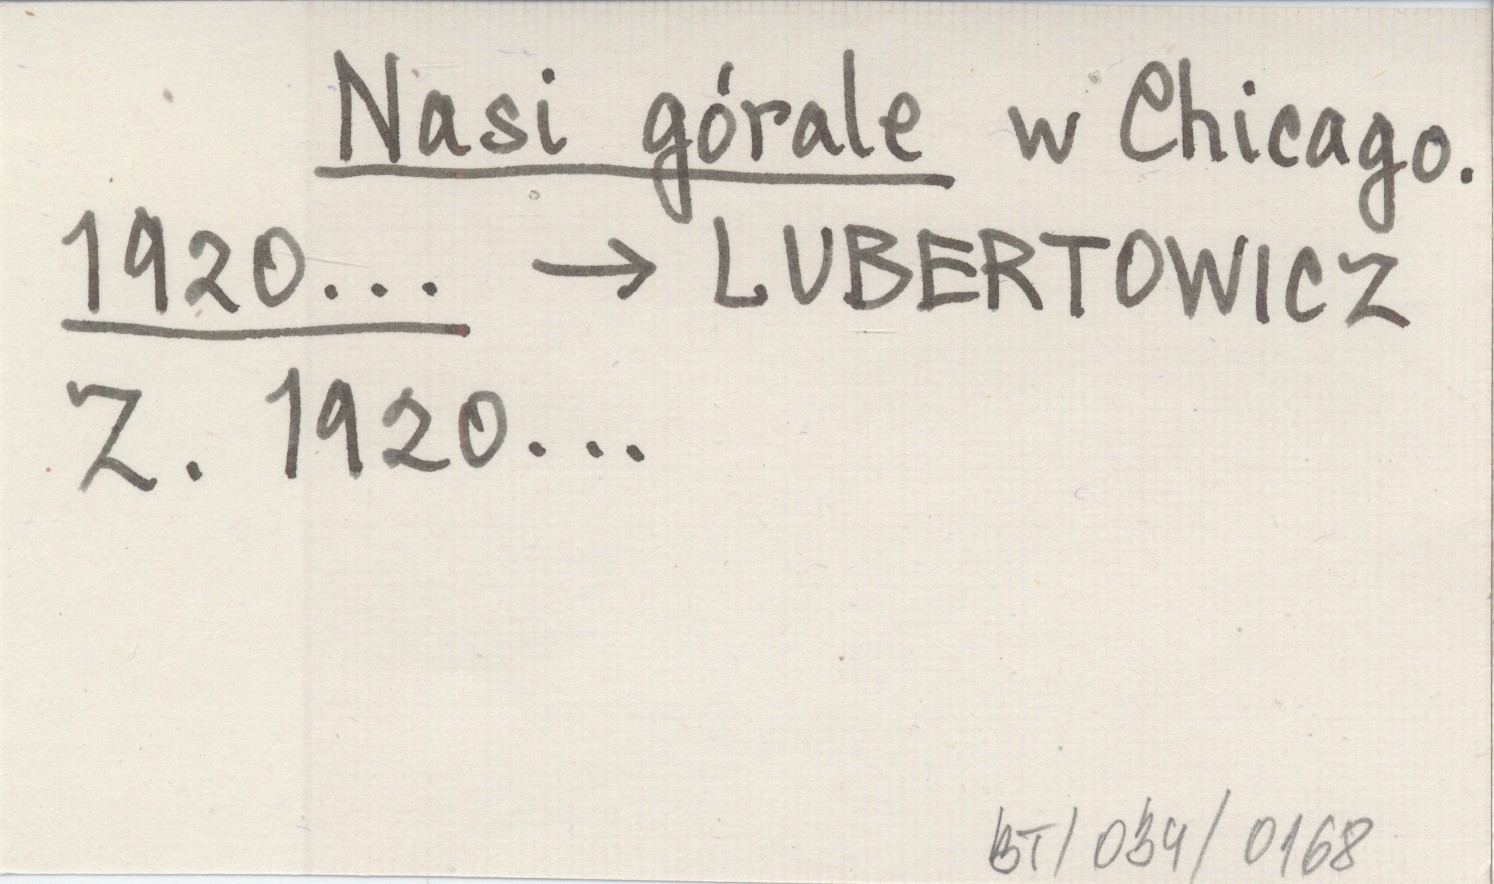 Nasi górale w Chicago.
1920... → LUBERTOWICZ
Z. 1920...
BT/034/0168